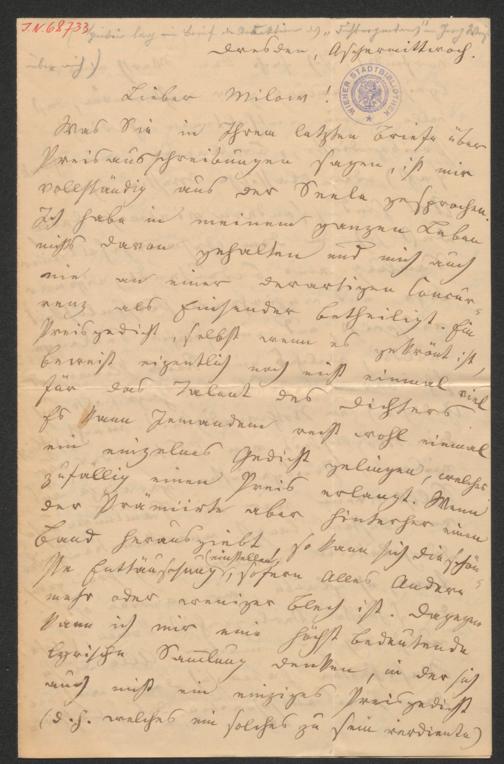 J.N. 68733
Hiebei lag ein Brief der Redaktion des „Dichtergarten"
über mich!)
Dresden, Aschermittwoch.
WIENER STADTBIBLIOTHEK
Lieber Milow!
Was Sie in Ihrem letzten Briefe über
Preisausschreibungen sagen, ist mir
vollständig aus der Seele gesprochen.
Ich habe in meinem ganzen Leben
nichts davon gehalten und mich auch
nie an einer derartigen Concur-
renz als Einsender betheiligt. Ein
Preisgedicht, selbst wenn es gekrönt ist,
beweist eigentlich noch nicht einmal viel
für das Talent des Dichters
Es kann Jemandem recht wohl einmal
ein einzelnes Gedicht gelingen, welches
zufällig einen Preis erlangt. Wenn
der Prämiirte aber hinterher einen
Band herausgiebt, so kann sich die schön-
ste Enttäuschung (einstellen), sofern Alles Andere
mehr oder weniger Blech ist. Dagegen
kann ich mir eine höchst bedeutende
lyrische Sammlung denken, in der sich
auch nicht ein einziges Preisgedicht
(d.h. welches ein solches zu sein verdiente)